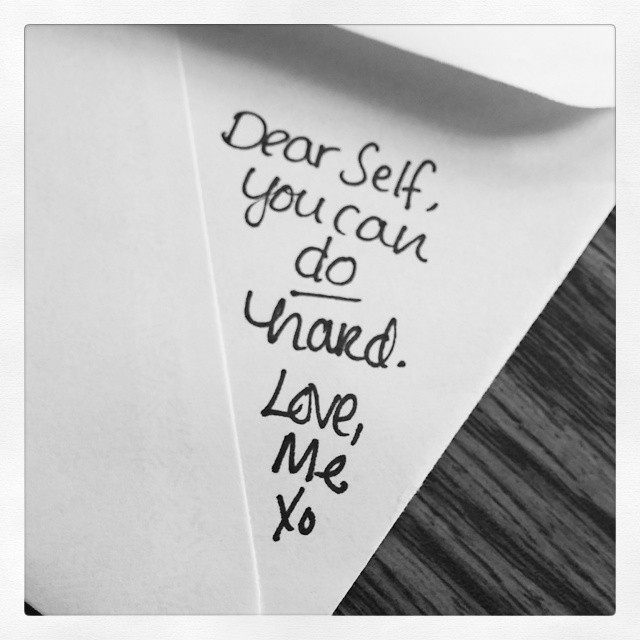 Dear Self,
you can
do
hard.
Love,
Me
Xo